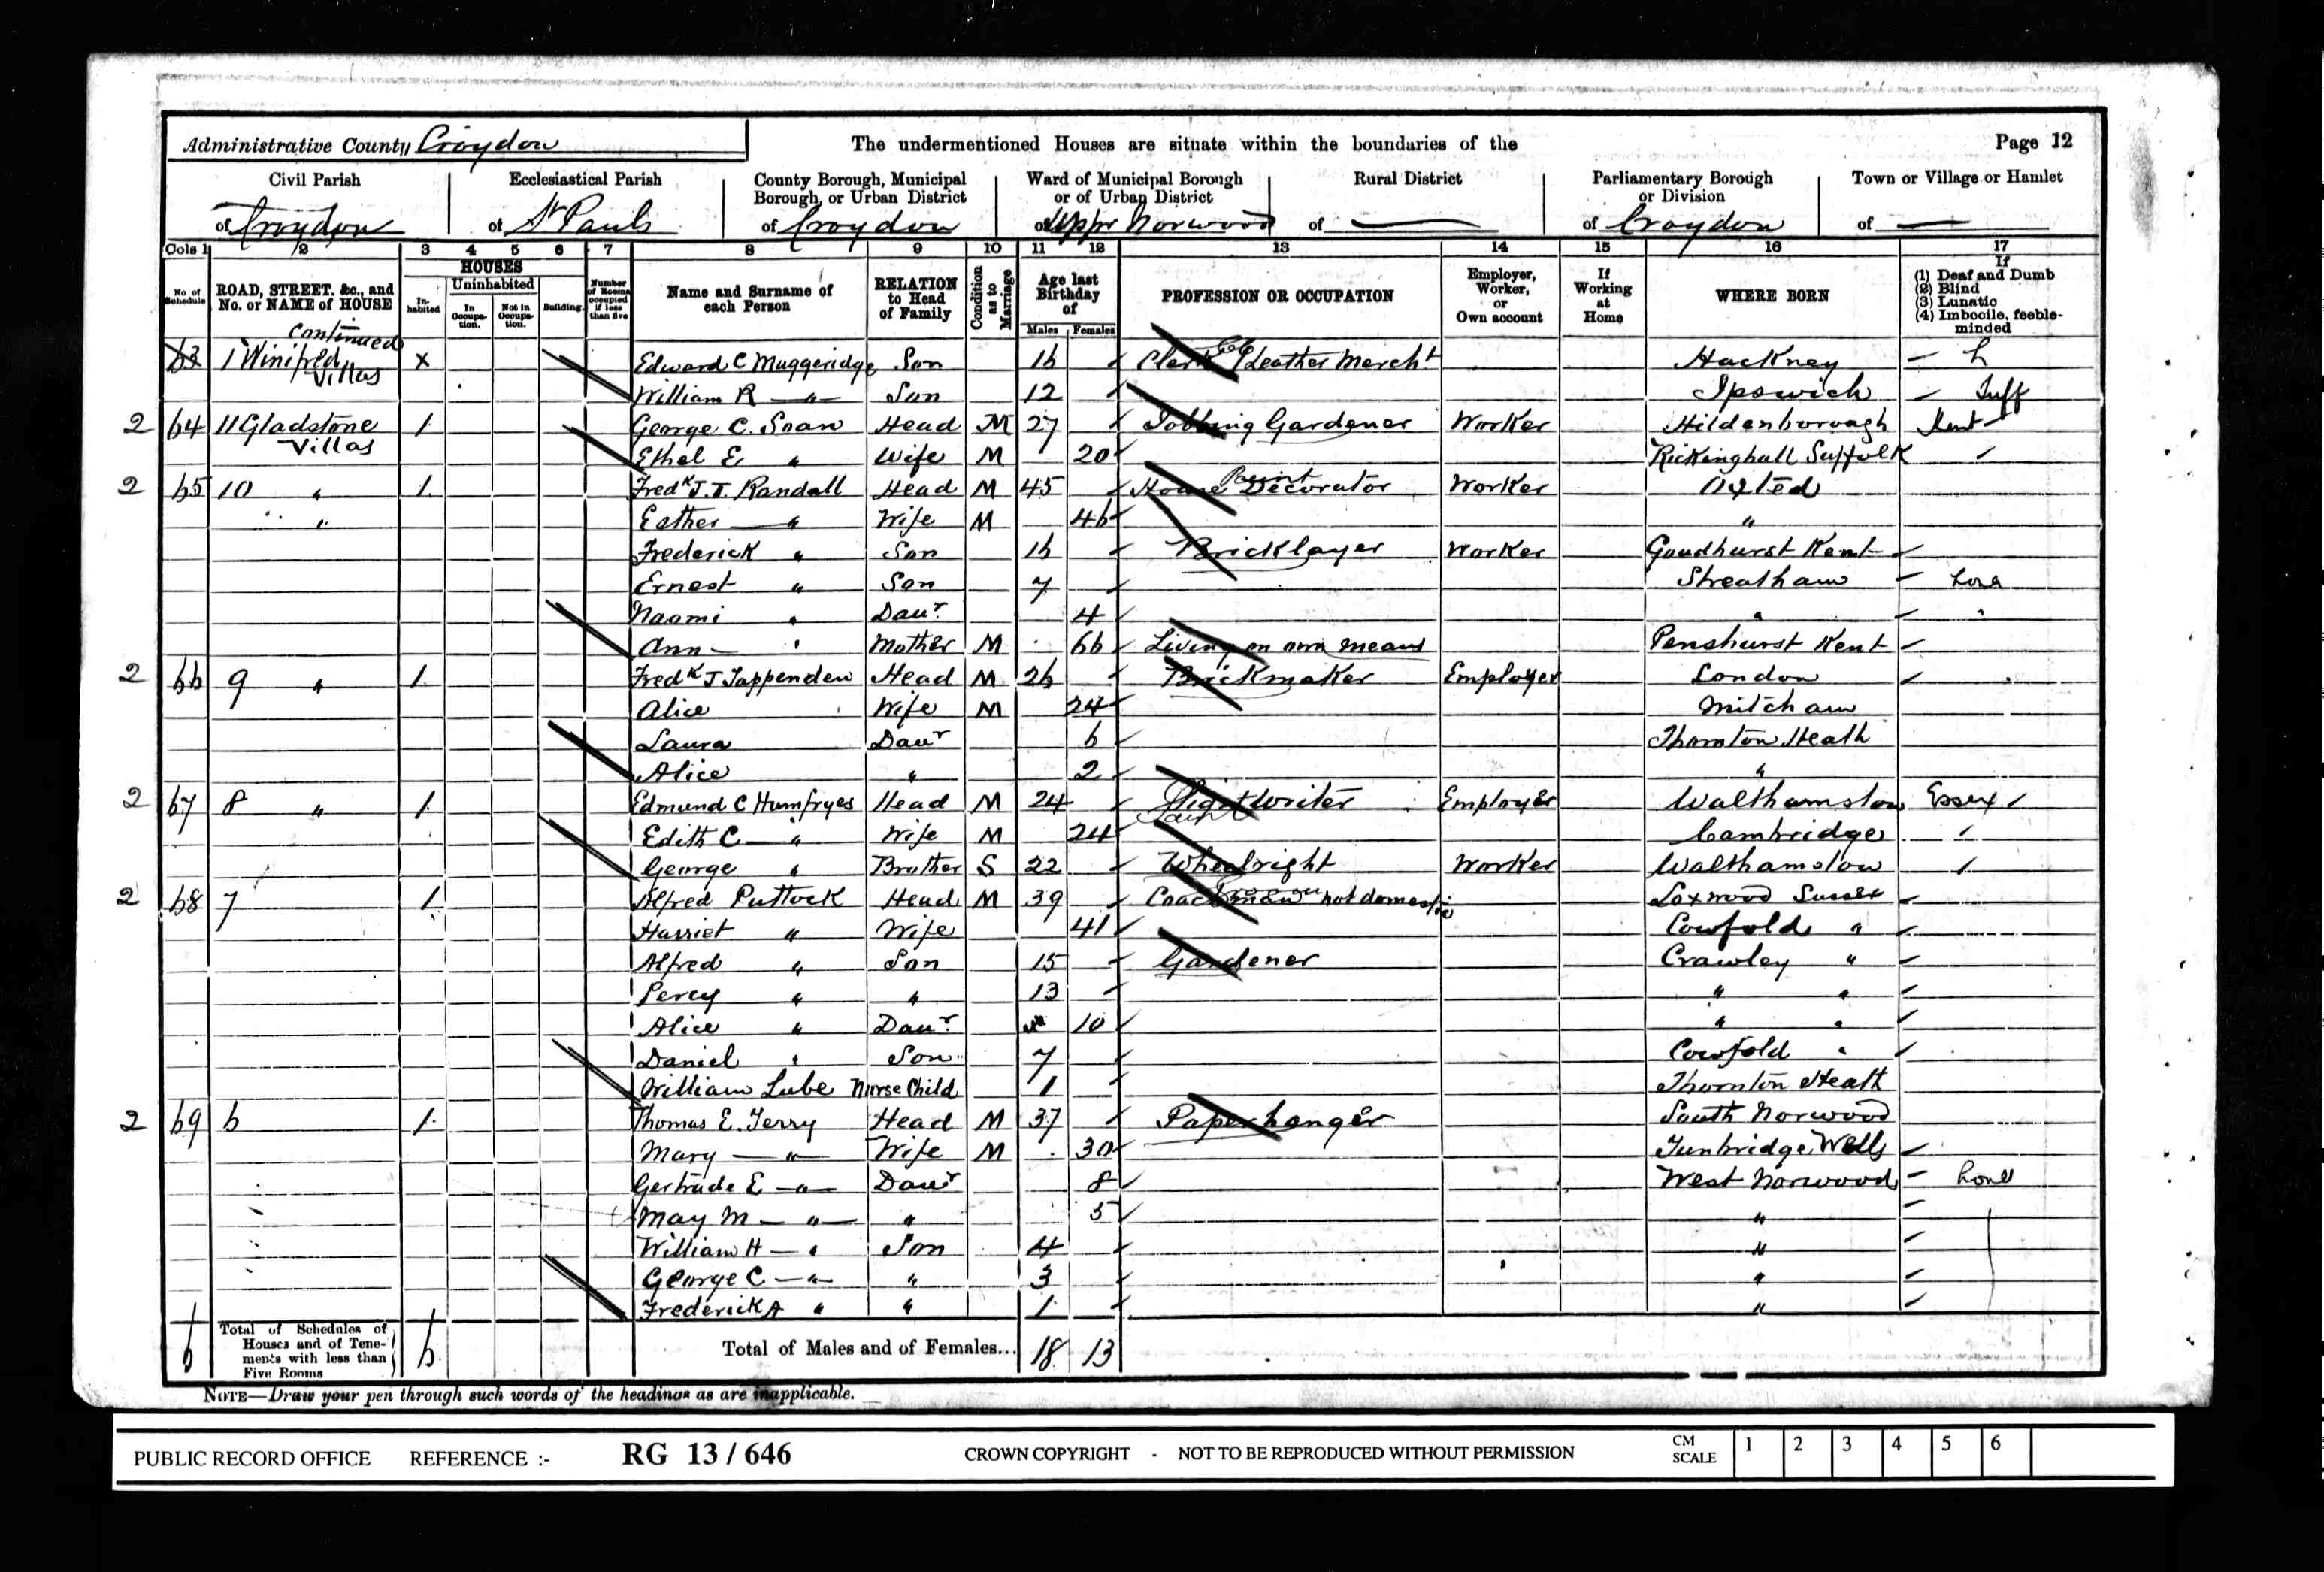 Administrative County Croydon
The undermentioned Houses are situate within the boundaries of the
Page 12
Civil Parish of Croydon
Ecclesiastical Parish of St Pauls
County Borough, Municipal Borough, or Urban District of Croydon
Ward of Municipal Borough or of Urban District of Upper Norwood
Rural District of —
Parliamentary Borough or Division of Croydon
Town or Village or Hamlet of —
Cols 1 2 3 4 5 6 7 8 9 10 11 12 13 14 15 16 17
No of Schedule
ROAD, STREET. &c., and No. or NAME of HOUSE
HOUSES
In-habited
Uninhabited
In Occupa-tion.
Not in Occupa-tion.
Building.
Number of Rooms occupied if less than five
Name and Surname of each Person
RELATION to Head of Family
Condition as to Marriage
Age last Birthday of
Males Females
PROFESSION OR OCCUPATION
Employer, Worker, or Own account
If Working at Home
WHERE BORN
If
(1) Deaf and Dumb
(2) Blind
(3) Lunatic
(4) Imbecile, feeble-minded
Continued
63 1 Winifred Villas x Edward C Muggeridge Son 16 Clerk Leather Mercht Hackney
William R " Son 12 Ipswich Suff
2 64 11 Gladstone Villas 1 George C. Soan Head M 27 Jobbing Gardener Worker Hildenborough Kent
Ethel E " Wife M 20 Rickinghall Suffolk
2 65 10 " 1 Fredk J.T. Randall Head M 45 House Decorator Worker Oxted
" Esther " Wife M 46 "
Frederick " Son 16 Bricklayer Worker Goudhurst Kent
Ernest " Son 7 Streatham Lond
Naomi " Daur 4 " "
Ann " Mother M 66 Living on own means Penshurst Kent
2 66 9 " 1 Fredk J Tappenden Head M 26 Brickmaker Employer London
Alice Wife M 24 Mitcham
Laura Daur 6 Thornton Heath
Alice " 2 "
2 67 8 " 1 Edmund C Humfryes Head M 24 Sign Writer Employer Walthamstow Essex
Edith C " Wife M 24 Cambridge
George " Brother S 22 Wheelright Worker Walthamstow
2 68 7 1 Alfred Puttock Head M 39 Coachman not domestic Loxwood Sussex
Harriet " Wife 41 Cowfold "
Alfred " Son 15 Gardener Crawley "
Percy " " 13 " "
Alice " Daur 10 " "
Daniel " Son 7 Cowfold "
William Lube Nurse Child 1 Thornton Heath
2 69 6 1 Thomas E. Terry Head M 37 Paperhanger South Norwood
Mary " Wife M 30 Tunbridge Wells
Gertrude E " Daur 8 West Norwood Lond
May M " " 5 "
William H " Son 4 "
George C " " 3 "
Frederick A " " 1 "
6 Total of Schedules of Houses and of Tene-ments with less than Five Rooms 6
Total of Males and of Females... 18 13
NOTE—Draw your pen through such words of the headings as are inapplicable.
PUBLIC RECORD OFFICE REFERENCE :- RG 13 / 646 CROWN COPYRIGHT - NOT TO BE REPRODUCED WITHOUT PERMISSION CM SCALE 1 2 3 4 5 6